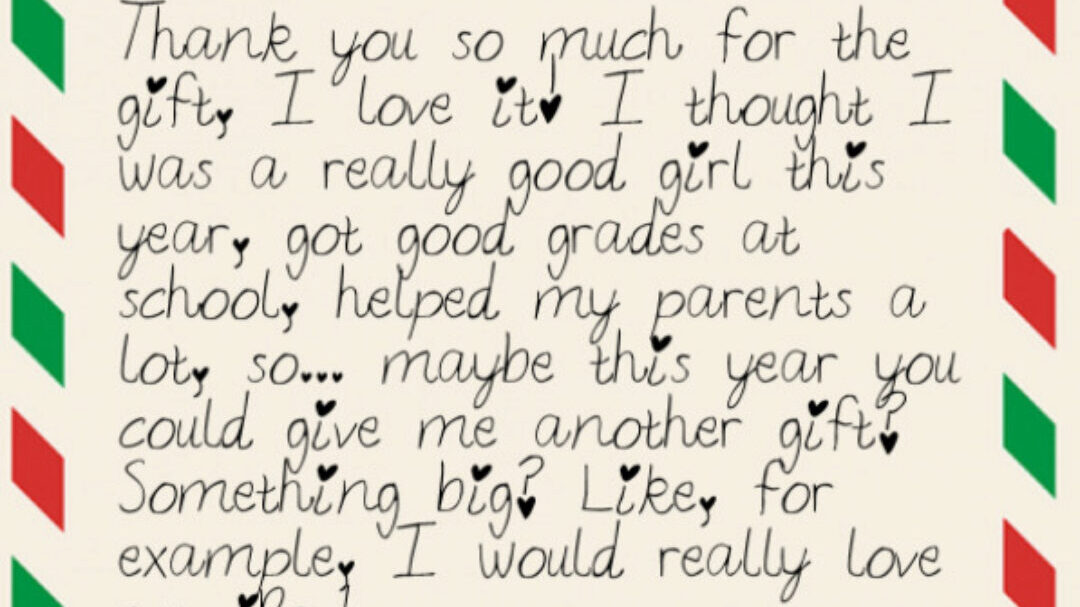 Thank you so much for the
gift, I love it! I thought I
was a really good girl this
year, got good grades at
school, helped my parents a
lot, so... maybe this year you
could give me another gift?
Something big? Like, for
example, I would really love